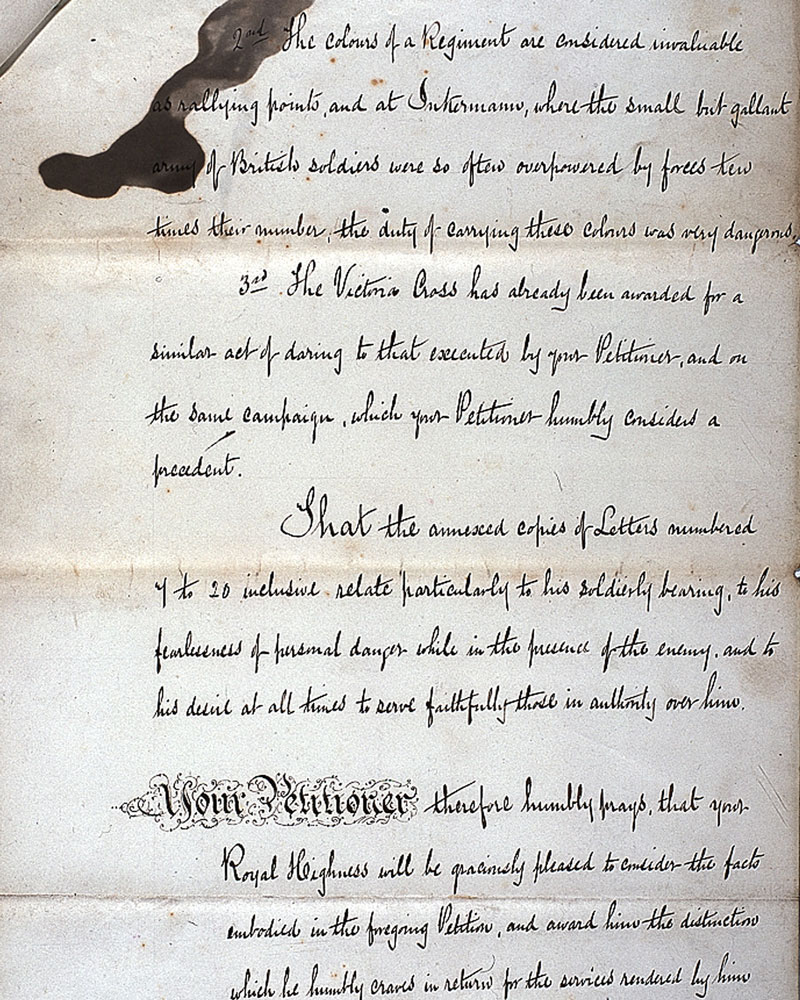 2nd The colours of a Regiment are considered invaluable
as rallying points, and at Inkermann, where the small but gallant
army of British soldiers were so often overpowered by forces ten
times their number, the duty of carrying these colours was very dangerous.
3rd The Victoria Cross has already been awarded for a
similar act of daring to that executed by your Petitioner, and on
the same campaign, which your Petitioner humbly considers a
precedent.
That the annexed copies of Letters numbered
7 to 20 inclusive relate particularly to his soldierly bearing, to his
fearlessness of personal danger while in the presence of the enemy, and to
his desire at all times to serve faithfully those in authority over him.
Your Petitioner therefore humbly prays, that your
Royal Highness will be graciously pleased to consider the facts
embodied in the foregoing Petition, and award him the distinction
which he humbly craves in return for the services rendered by him